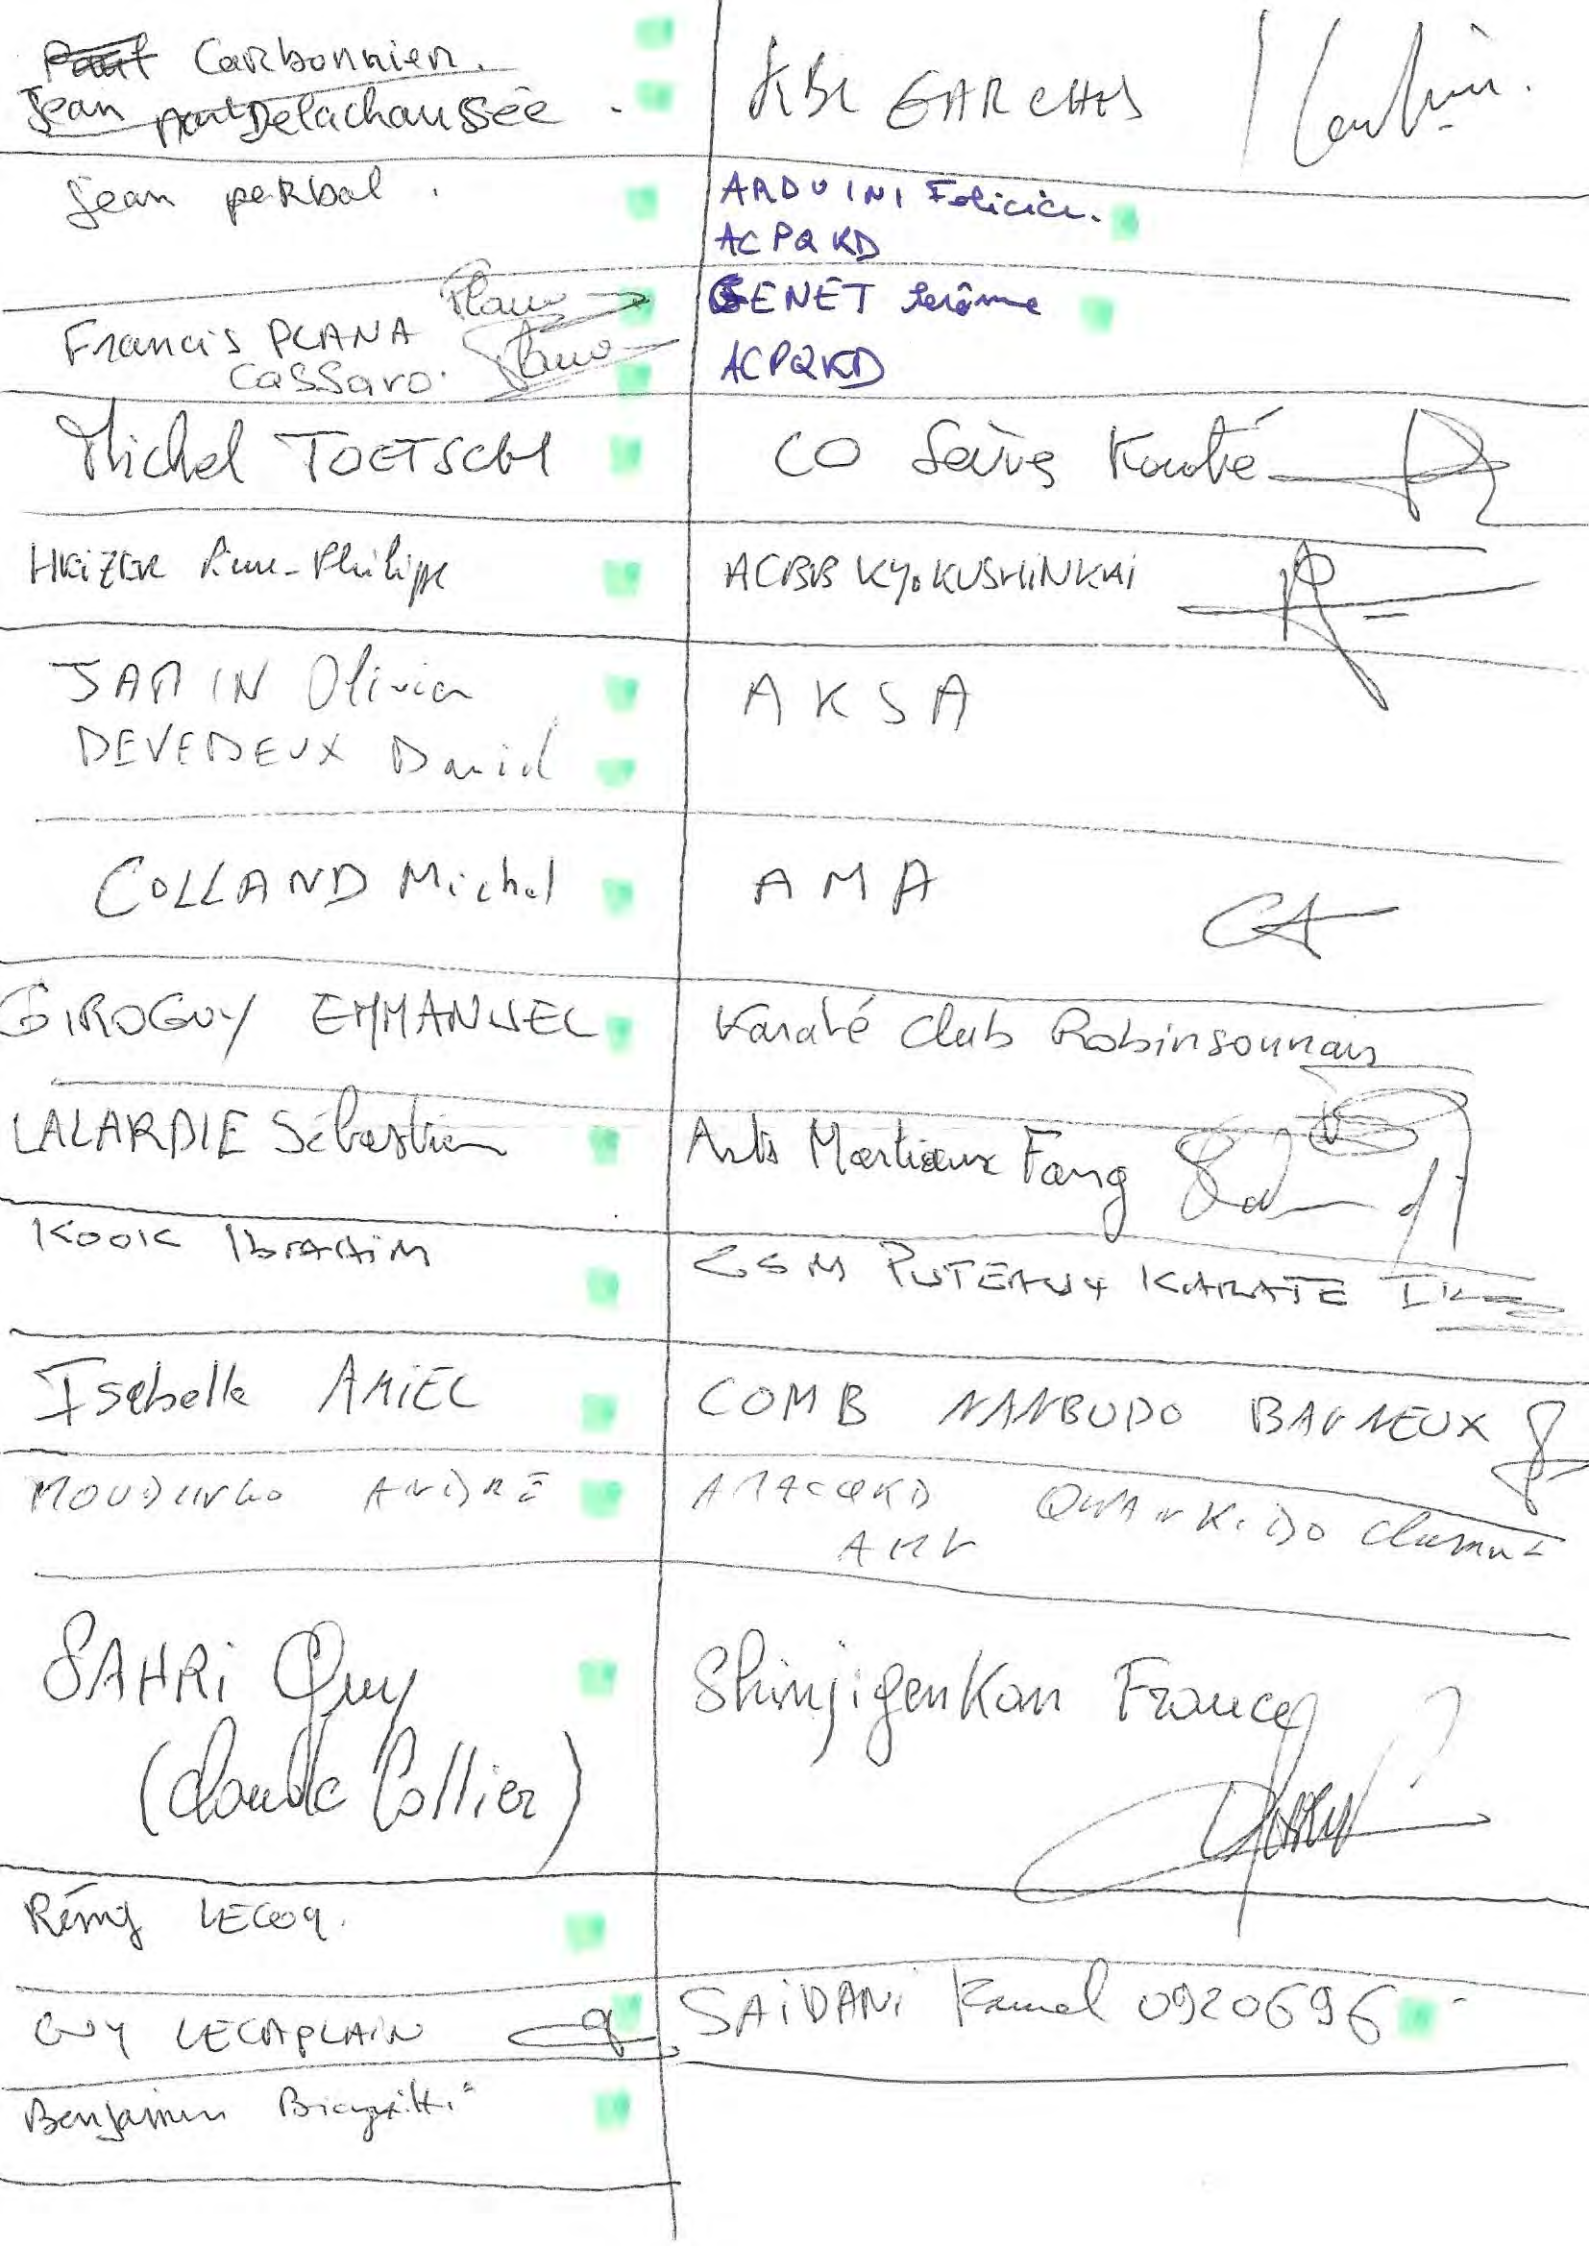 Carbonnier.
Jean Delachaussée.
KBL GARCHES
Jean perbal.
ARDUINI Felicia.
ACPQKD
SENET Jerôme
ACPQKD
Francis PLANA
Cassaro.
Michel TOETSCH
CO Sèvres Karaté
HEIZER Pierre-Philippe
ACBB KYOKUSHINKAI
JAMIN Olivier
DEVEDEUX Daniel
AKSA
COLLAND Michel
AMA
GIROGUY EMMANUEL
Karaté Club Robinsonnais
LALARDIE Sébastien
Arts Martiaux Fang
KOOK IbrAHiM
CSM PUTEAUX KARATE
Isabelle AMIEL
COMB NANBUDO BAGNEUX
ANDRÉ
QWANKIDO
SAHRi Guy
(Claude Collier)
Shinjigenkan France
Rémy LECOQ.
GUY LECAPLAIN
SAiDANi Kamel 0920696
Benjamin